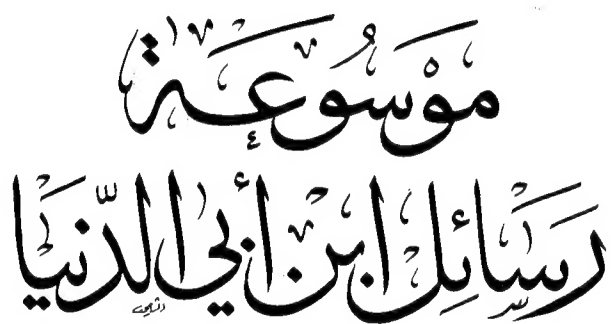 مَوْسُوعَة
رَسَائِل ابن أبي الدّنيا